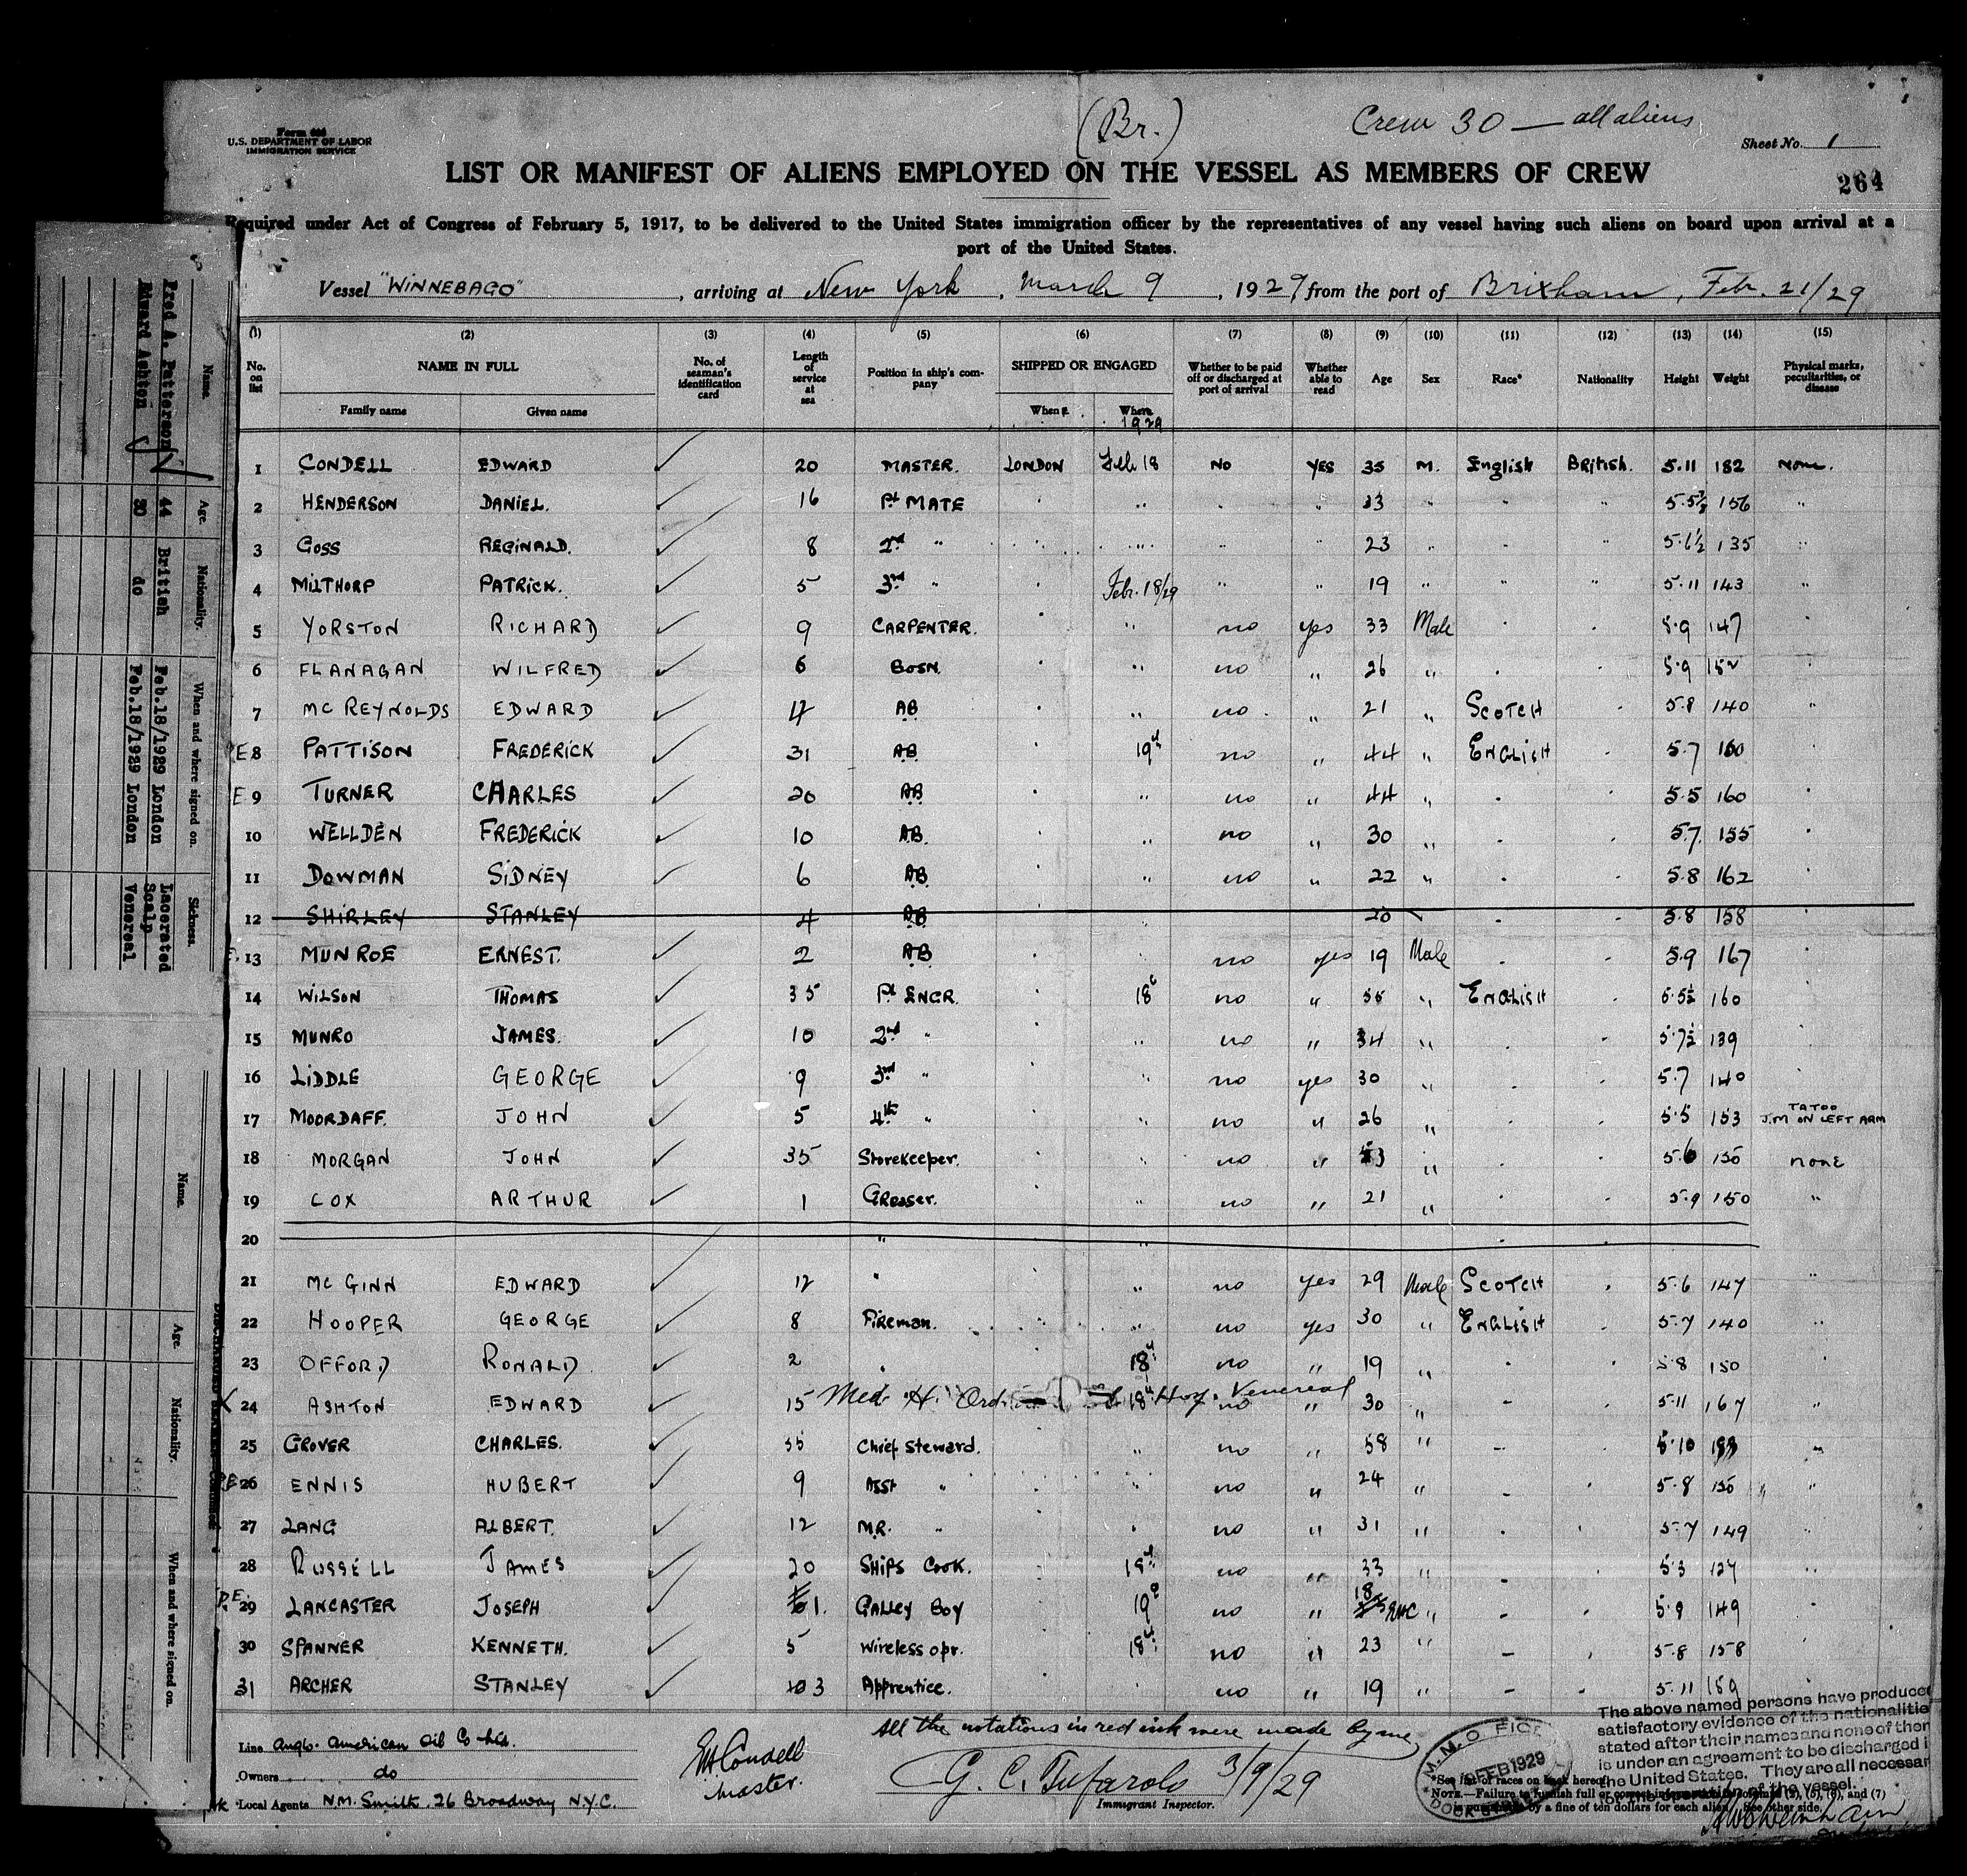 (Br.)
Crew 30 — all aliens
Form 686
U.S. DEPARTMENT OF LABOR
IMMIGRATION SERVICE
Sheet No. 1
LIST OR MANIFEST OF ALIENS EMPLOYED ON THE VESSEL AS MEMBERS OF CREW
264
Required under Act of Congress of February 5, 1917, to be delivered to the United States immigration officer by the representatives of any vessel having such aliens on board upon arrival at a
port of the United States.
Vessel "WINNEBAGO", arriving at New York, March 9, 1929 from the port of Brixham, Febr. 21/29
(1) (2) (3) (4) (5) (6) (7) (8) (9) (10) (11) (12) (13) (14) (15)
No. on list NAME IN FULL No. of seaman's identification card Length of service at sea Position in ship's company SHIPPED OR ENGAGED Whether to be paid off or discharged at port of arrival Whether able to read Age Sex Race* Nationality Height Weight Physical marks, peculiarities, or disease
Family name Given name When Where
1929
1 CONDELL EDWARD 20 MASTER. LONDON Feb 18 No YES 35 M. English British. 5.11 182 None.
2 HENDERSON DANIEL. 16 MATE " " 33 " " " 156 "
3 GOSS REGINALD. 8 2nd " " " " 23 " " 5.6½ 135 "
4 MILTHORP PATRICK. 5 3rd " Febr. 18/29 " " 19 " " " 5.11 143 "
5 YORSTON RICHARD 9 CARPENTER. " no yes 33 Male 5.9 147
6 FLANAGAN WILFRED 6 BOSN. " no " 26 " 5.9 152
7 MC REYNOLDS EDWARD AB " no " 21 " SCOTCH 5.8 140 "
E 8 PATTISON FREDERICK 31 AB 19th no " 44 " ENGLISH 5.7 160
E 9 TURNER CHARLES 20 AB " no " 44 " 5.5 160
10 WELLDEN FREDERICK 10 AB. " no " 30 " 5.7. 155
11 DOWMAN SIDNEY 6 AB " no " 22 " 5.8 162
12 SHIRLEY STANLEY 4 AB 20 5.8 158
13 MUNROE ERNEST. 2 AB no yes 19 Male 5.9 167
14 WILSON THOMAS 35 ENGR. 18 no " 55 " ENGLISH 5.5½ 160
15 MUNRO JAMES. 10 2nd " " no " 34 " 5.7½ 139
16 LIDDLE GEORGE 9 3rd " " no yes 30 " 5.7 140
17 MOORDAFF. JOHN 5 4th " " no " 26 " 5.5 153 TATOO J.M ON LEFT ARM
18 MORGAN JOHN 35 Storekeeper. " no " 53 " 5.6 150 NONE
19 COX ARTHUR 1 Greaser. " no " 21 " 5.9 150 "
20 " "
21 MC GINN EDWARD 12 " " no yes 29 Male SCOTCH 5.6 147 "
22 HOOPER GEORGE 8 Fireman. " no yes 30 " ENGLISH 5.7 140 "
23 OFFORD RONALD 2 " 18th no " 19 " 5.8 150 "
X 24 ASHTON EDWARD 15 Med. H. Ord. 18th Hosp. Venereal no " 30 " 5.11 167 "
25 GROVER CHARLES. 35 Chief Steward. " no " 58 " 5.10 "
26 ENNIS HUBERT 9 Asst " " no " 24 " 5.8 "
27 LANG ALBERT. 12 M.R. " no " 31 " 5.7 149
28 RUSSELL JAMES 20 SHIPS COOK. 18th no " 33 " 5.3 127
P.E. 29 LANCASTER JOSEPH 1. GALLEY BOY 19 no " 18 " 5.9 149
30 SPANNER KENNETH. 5 Wireless opr. 18th no " 23 " 5.8 158
31 ARCHER STANLEY 3 Apprentice. no " 19 " 5.11 159
Line Anglo-American Oil Co Ltd.
Owners do
Local Agents N.M. Smith. 26 Broadway N.Y.C.
EH Condell
Master.
All the notations in red ink were made by me
G. C. Tufarolo 3/9/29
Immigrant Inspector.
FEB 1929
The above named persons have produced
satisfactory evidence of the nationalities
stated after their names and none of them
is under an agreement to be discharged in
the United States. They are all necessary
operation of the vessel.
*See list of races on back hereof.
NOTE.—Failure to furnish full or correct information in columns (2), (5), (6), and (7)
is punishable by a fine of ten dollars for each alien. See other side.
Name. Age. Nationality. When and where signed on. Sickness.
Fred A. Patterson 44 British Feb.18/1929 London Lacerated Scalp
Edward Ashton 30 do Feb.18/1929 London Venereal
Name. Age. Nationality. When and where signed on.